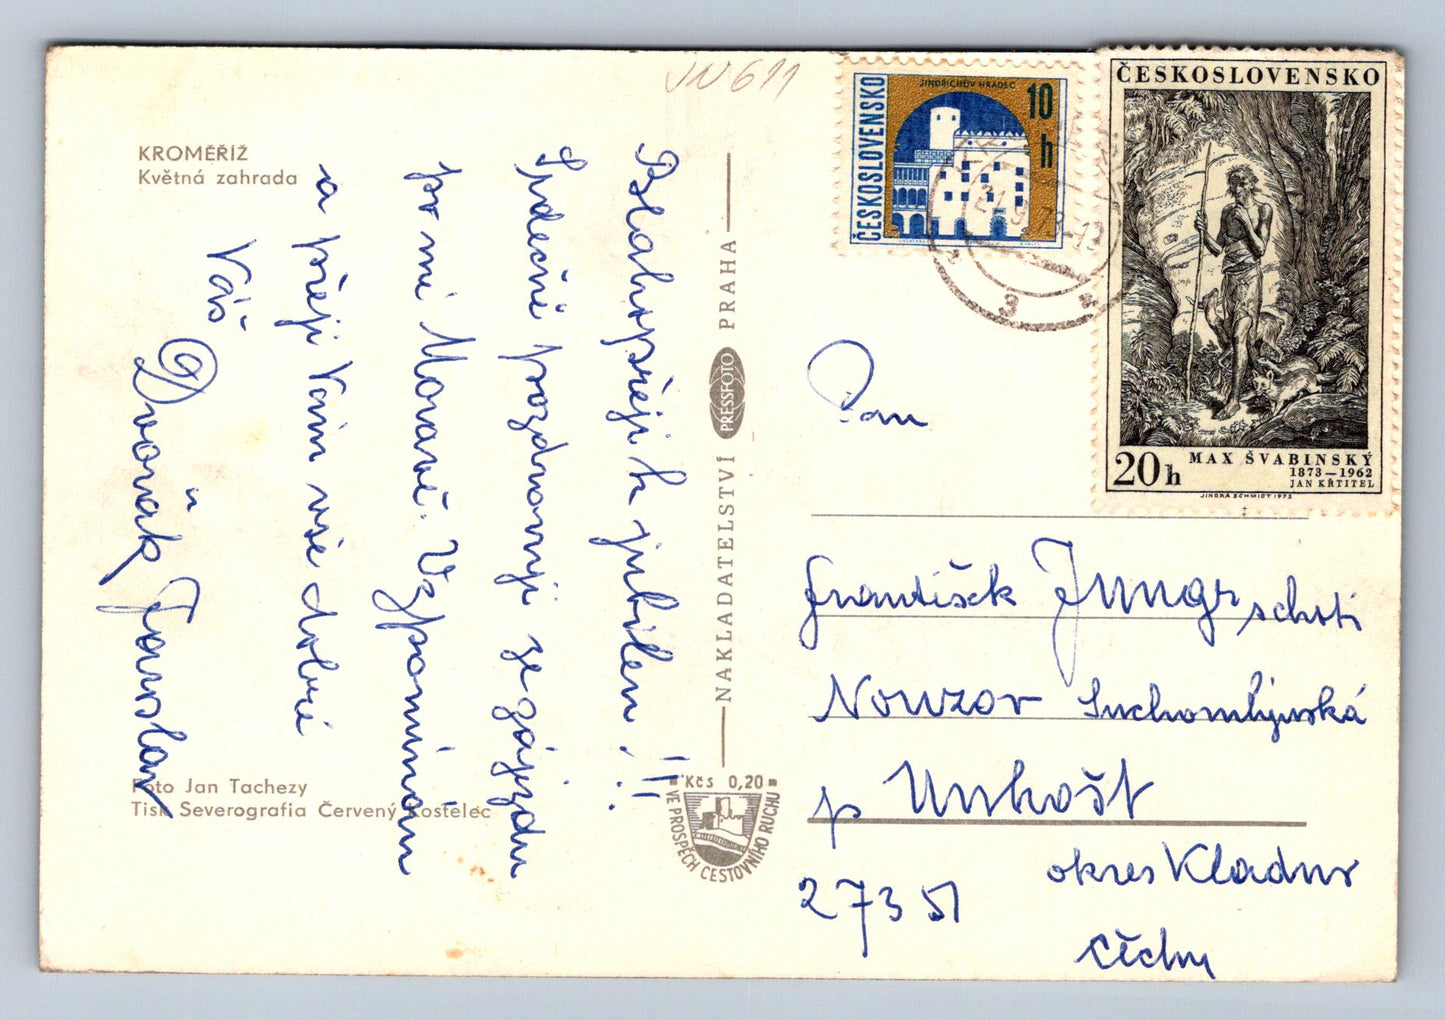 JV 611
KROMĚŘÍŽ
Květná zahrada
Blahopřeji k jubileu!!!
Srdečně pozdravuji ze zájezdu
po mé Moravě. Vzpomínám
a přeji Vám vše dobré
Váš
Dvořák Jaroslav
Foto Jan Tachezy
Tisk Severografia Červený Kostelec
NAKLADATELSTVÍ PRESSFOTO PRAHA
Kčs 0,20
VE PROSPĚCH CESTOVNÍHO RUCHU
ČESKOSLOVENSKO
JINDŘICHŮV HRADEC
10 h
ČESKOSLOVENSKO
20 h
MAX ŠVABINSKÝ
1873–1962
JAN KŘTITEL
JINDRA SCHMIDT 1973
Pan
František
Nouzov
p Unhošť
okres Kladno
273 51
Čechy